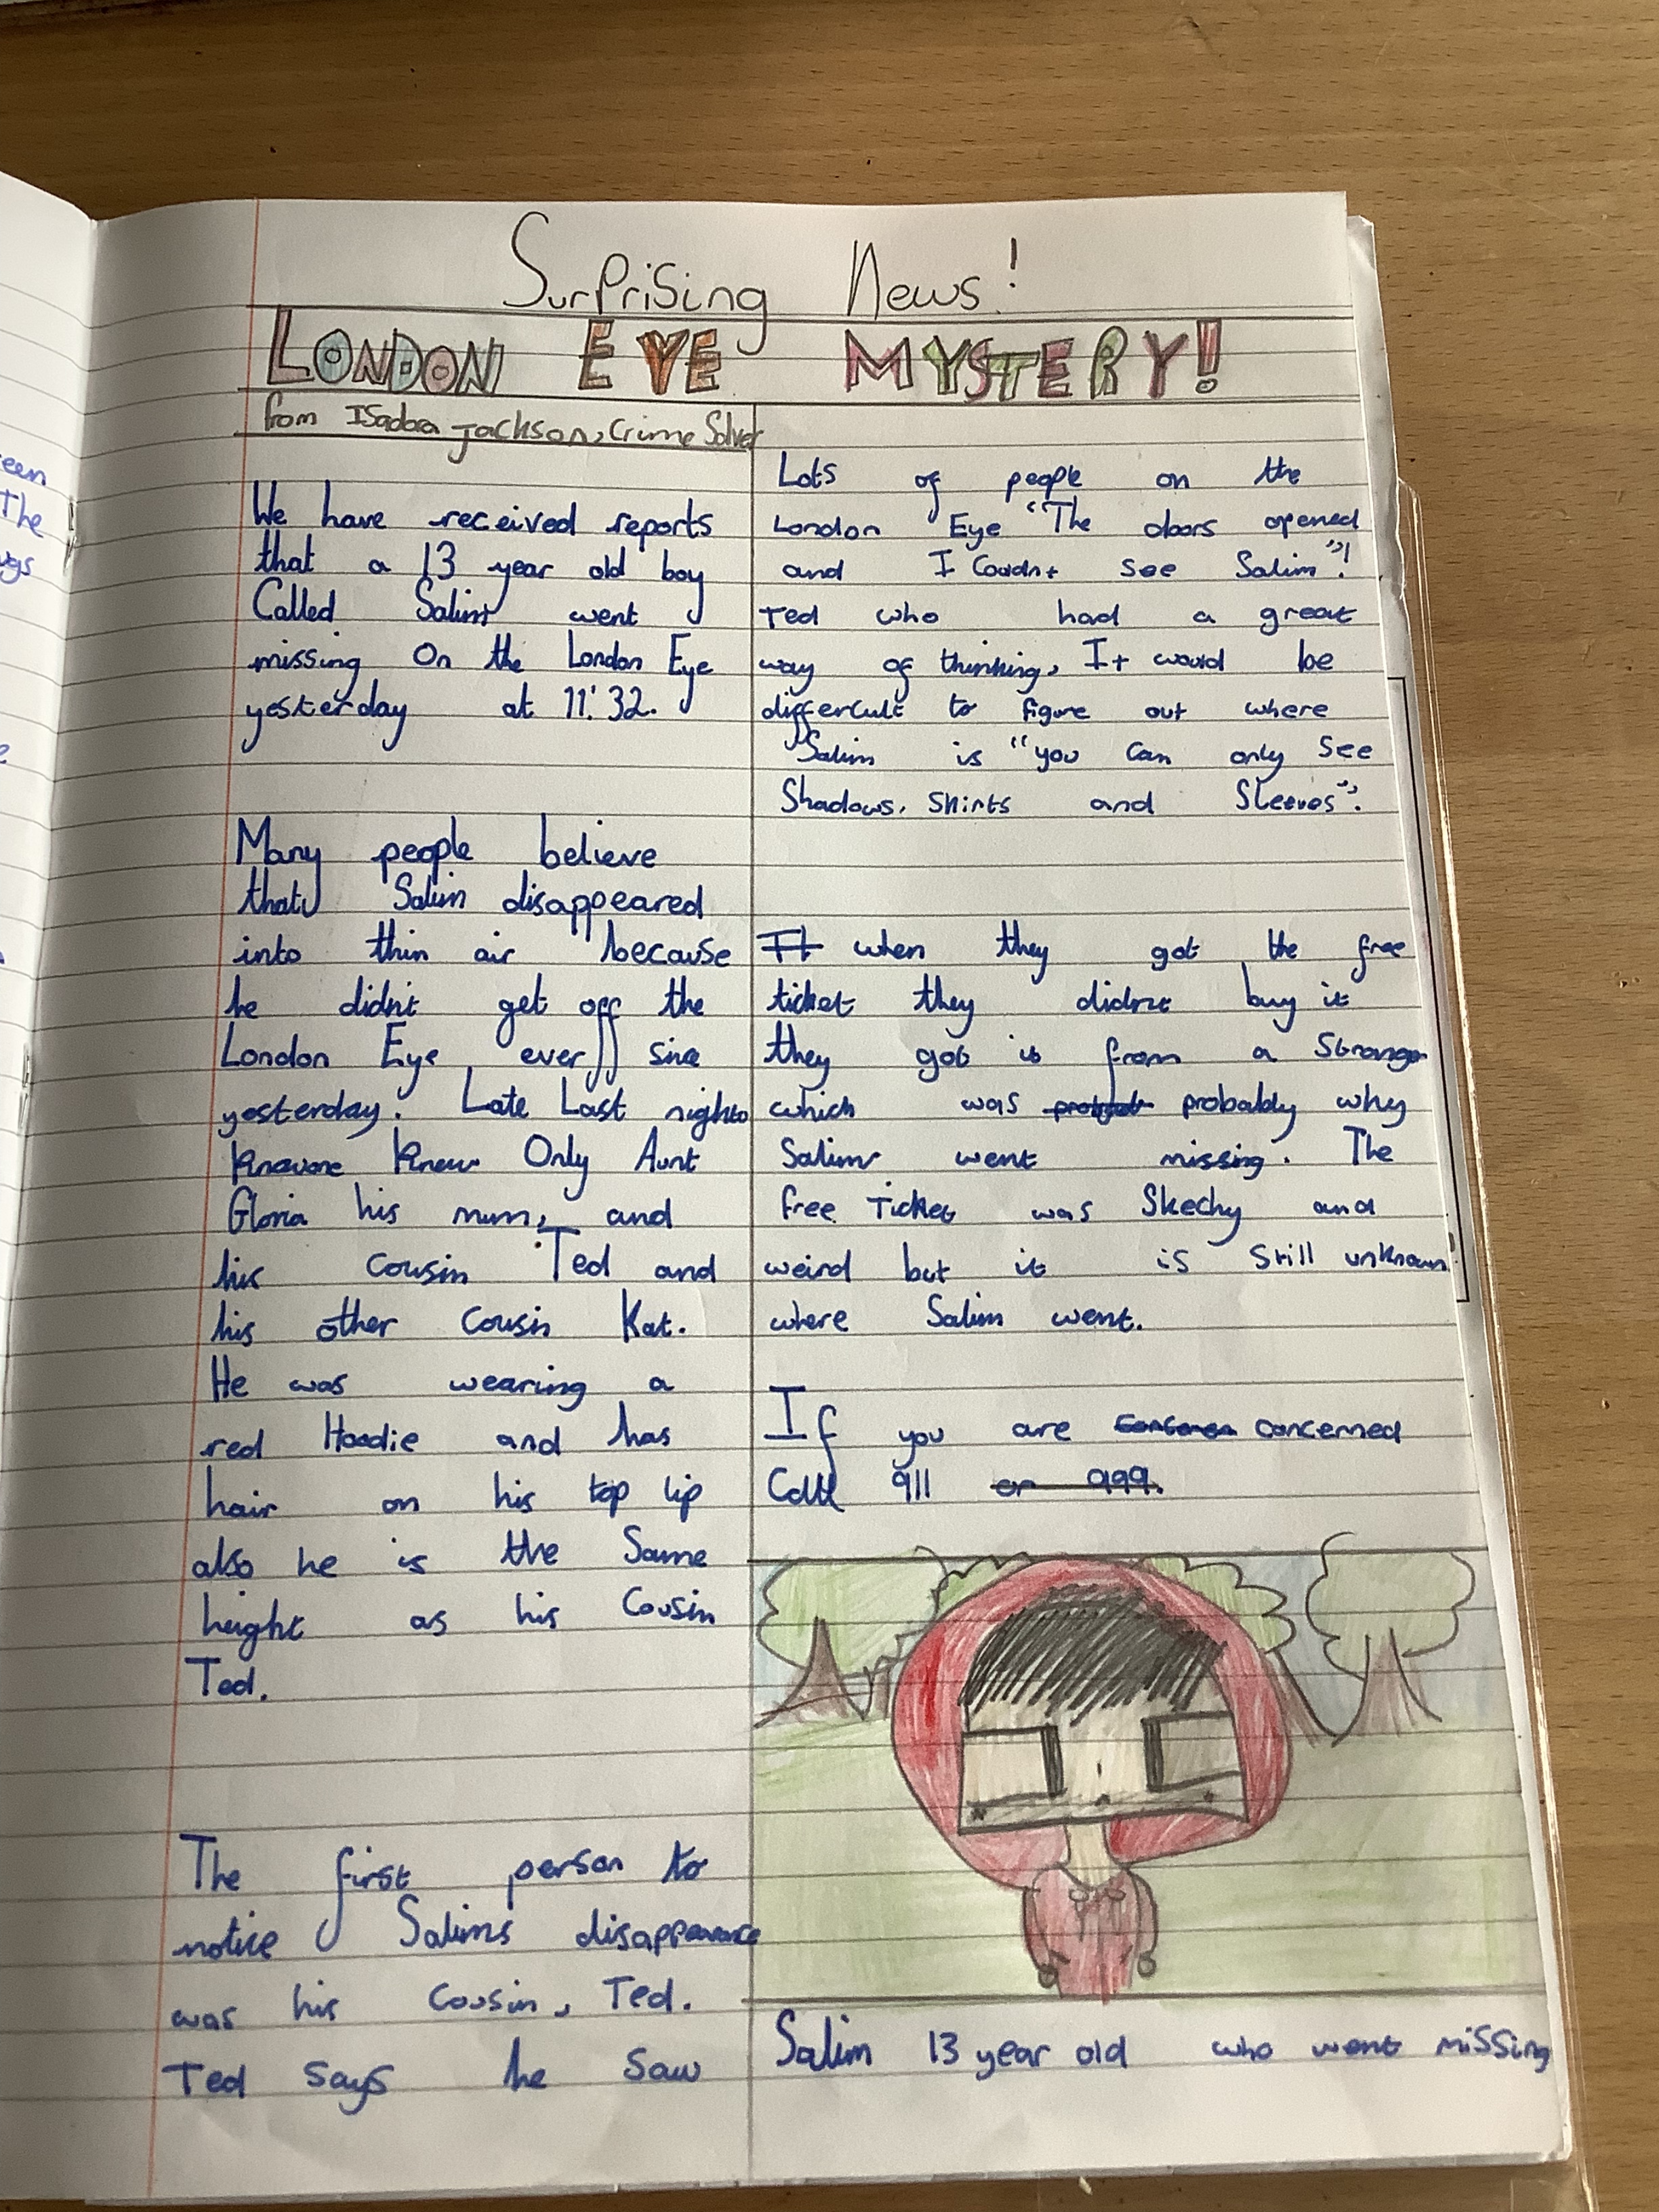 Surprising News!
LONDON EYE MYSTERY!
from Isadora Jackson, Crime Solver
We have received reports
that a 13 year old boy
Called Salim went
missing On the London Eye
yesterday at 11:32.
Many people believe
that Salim disappeared
into thin air because
he didn't get off the
London Eye ever since
yesterday. Late Last night
Knew Only Aunt
Gloria his mum, and
his cousin Ted and
his other cousin Kat.
He was wearing a
red Hoodie and has
hair on his top lip
also he is the Same
height as his Cousin
Ted.
The first person to
notice Salims disappearance
was his cousin, Ted.
Ted says he saw
Lots of people on the
London Eye "The doors opened
and I Coudnt see Salim"!
Ted who had a great
way of thinking, It would be
differcult to figure out where
Salim is "you can only see
Shadows, Shirts and Sleeves".
It when they got the free
ticket they didnt buy it
they got it from a Stranger
which was probably why
Salim went missing. The
free Ticket was Skechy and
weird but it is Still unknown
where Salim went.
If you are concerned
Call 911 or 999.
Salim 13 year old who went missing
een
The
ugs